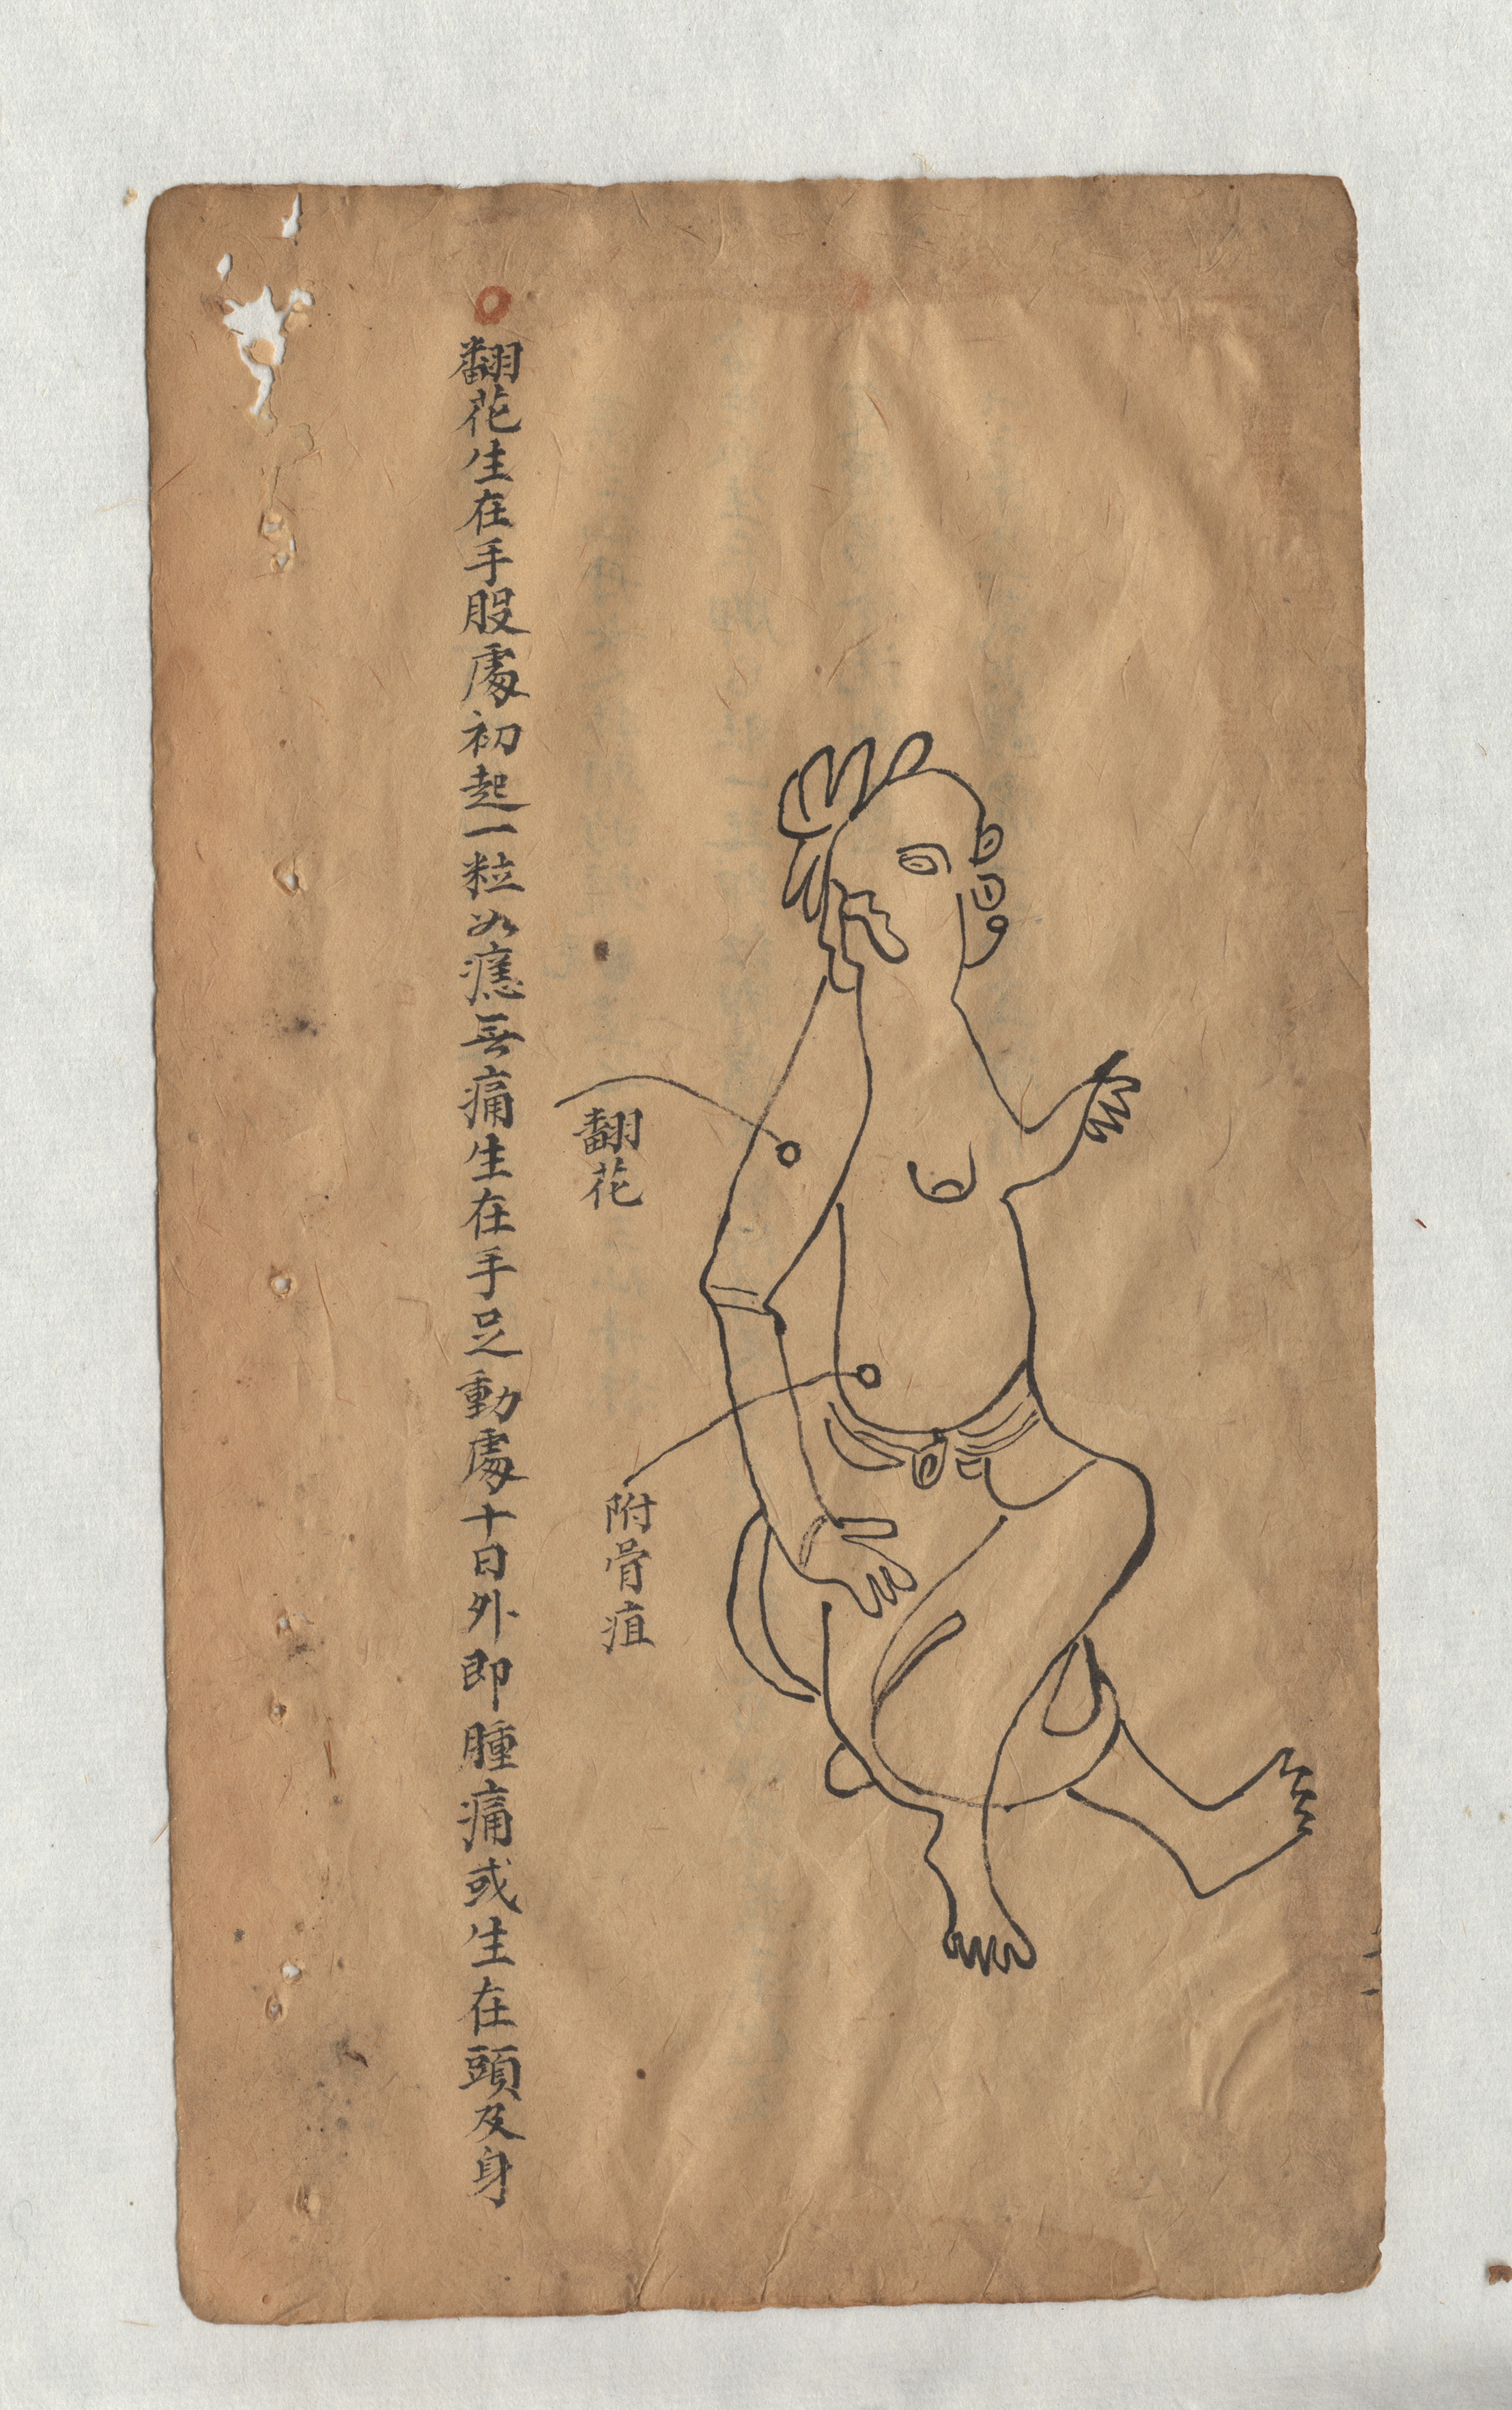 附骨疽
翻花
翻花生在手股處初起一粒如瘜無痛生在手足動處十日外即腫痛或生在頭及身